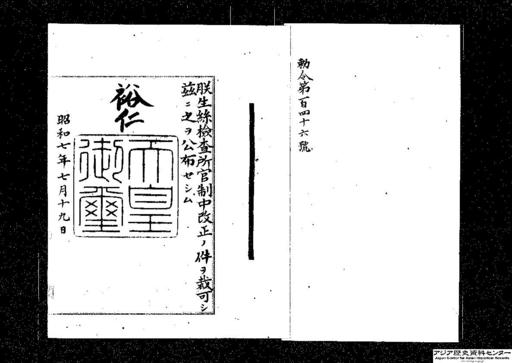 勅令第百四十六號
朕生絲檢查所官制中改正ノ件ヲ裁可シ
茲ニ之ヲ公布セシム
裕仁
天皇
御璽
昭和七年七月十九日
アジア歴史資料センター
Japan Center for Asian Historical Records